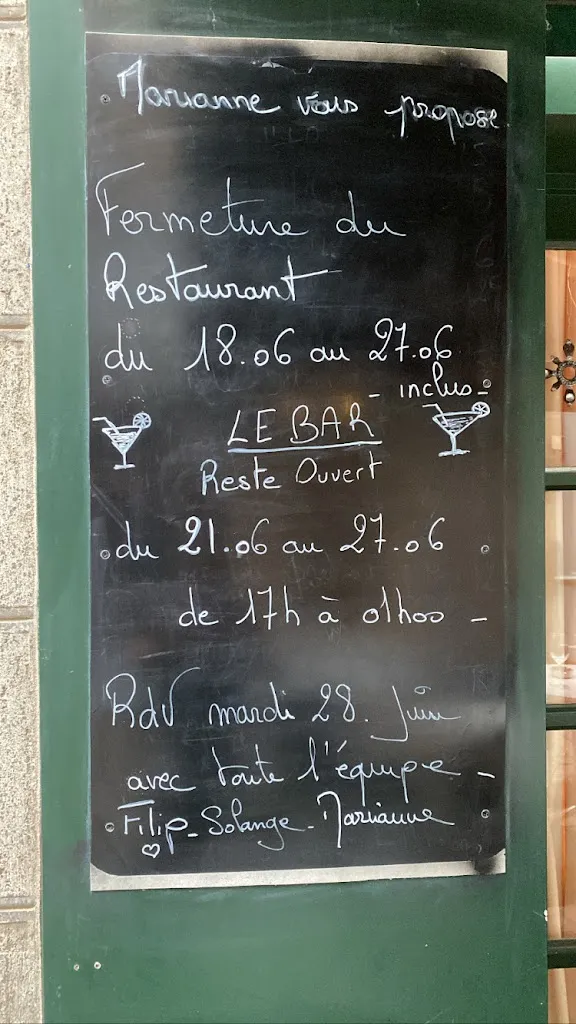 Marianne vous propose
Fermeture du
Restaurant
du 18.06 au 27.06
- inclus -
LE BAR
Reste Ouvert
du 21.06 au 27.06
de 17h à 01h00 -
RdV mardi 28. Juin
avec toute l'équipe -
Filip - Solange - Marianne